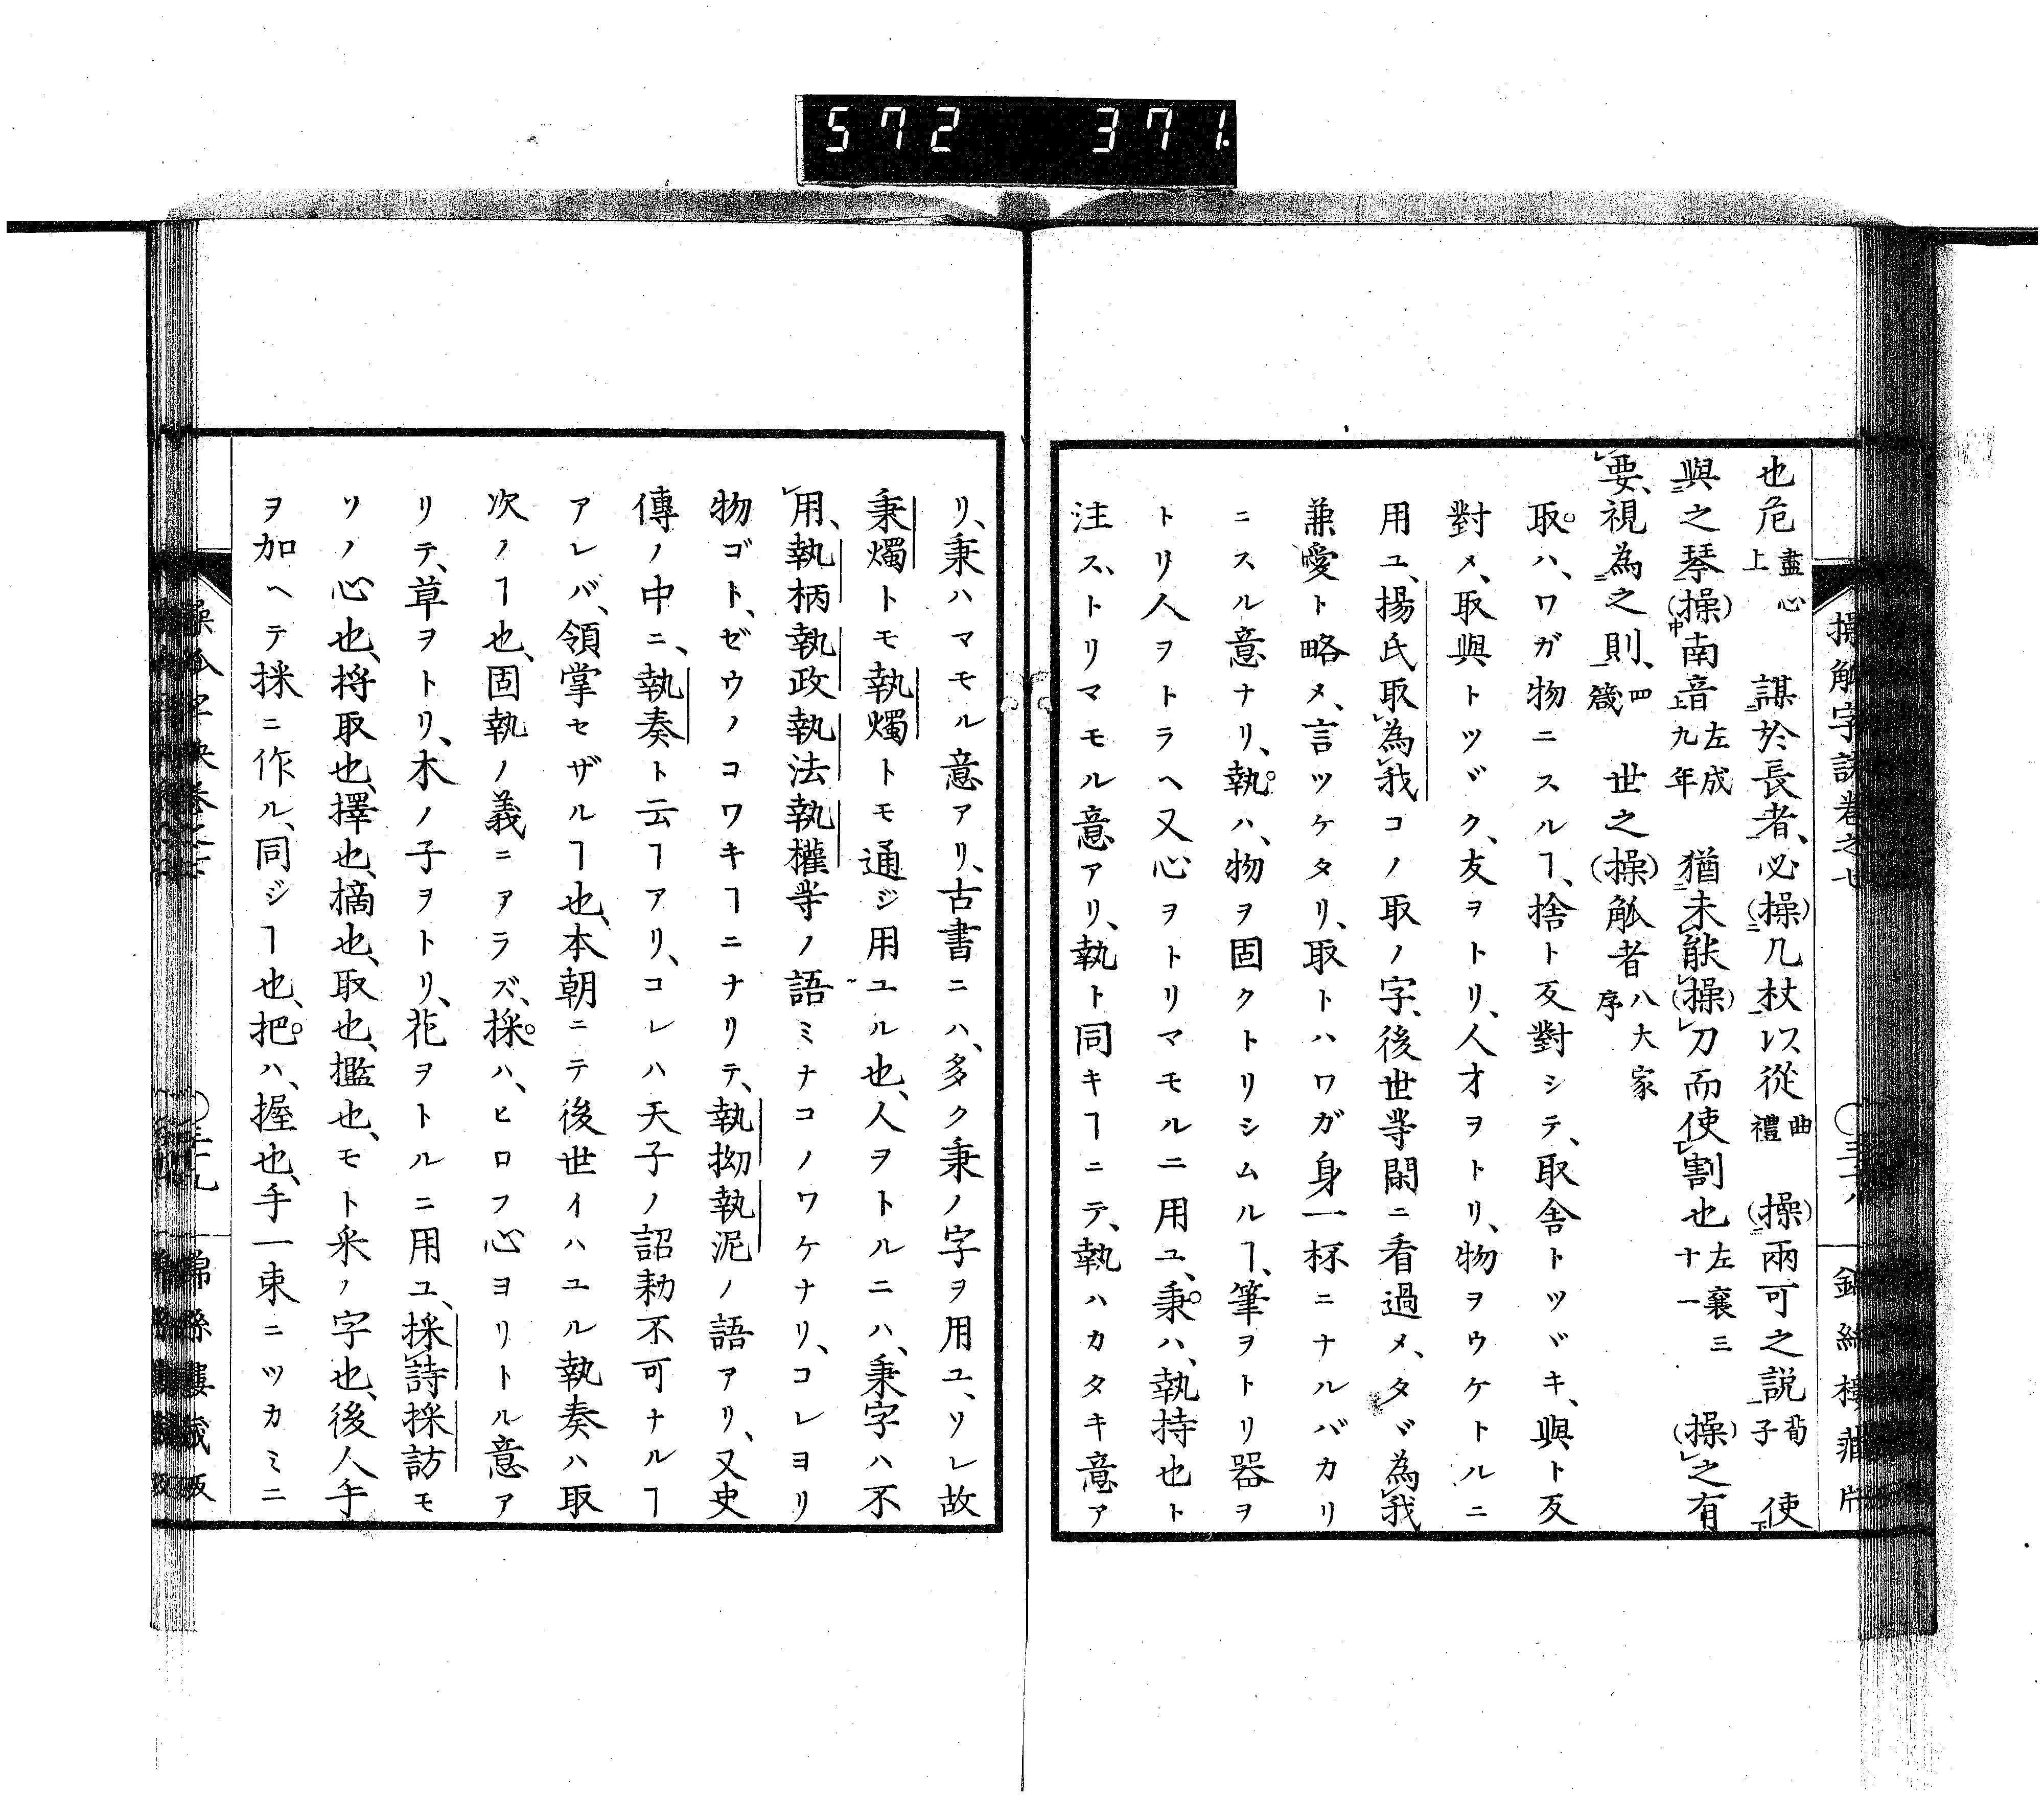 572 371.
操觚字訣卷之七
也危盡心上 謀於長者、必操几杖以從曲禮 操兩可之説荀子 使
與之琴操南音左成九年 猶未能操刀而使割也左襄三十一 操之有
要、視為之則、四箴 世之操觚者八大家序
取ハ、ワガ物ニスルヿ、捨ト反對シテ、取舍トツヾキ、與ト反
對メ、取與トツヾク、友ヲトリ、人才ヲトリ、物ヲウケトルニ
用ユ、揚氏取為我コノ取ノ字、後世等閑ニ看過メ、タヾ為我
兼愛ト略メ、言ツケタリ、取トハワガ身一杯ニナルバカリ
ニスル意ナリ、執ハ、物ヲ固クトリシムルヿ、筆ヲトリ器ヲ
トリ人ヲトラヘ又心ヲトリマモルニ用ユ、秉ハ、執持也ト
注ス、トリマモル意アリ、執ト同キヿニテ、執ハカタキ意ア
リ、秉ハマモル意アリ、古書ニハ、多ク秉ノ字ヲ用ユ、ソレ故
秉燭トモ執燭トモ通ジ用ユル也、人ヲトルニハ、秉字ハ不
用、執柄執政執法執權等ノ語ミナコノワケナリ、コレヨリ
物ゴト、ゼウノコワキヿニナリテ、執拗執泥ノ語アリ、又史
傳ノ中ニ、執奏ト云ヿアリ、コレハ天子ノ詔勅不可ナルヿ
アレバ、領掌セザルヿ也、本朝ニテ後世イハユル執奏ハ取
次ノヿ也、固執ノ義ニアラズ、採ハ、ヒロフ心ヨリトル意ア
リテ、草ヲトリ、木ノ子ヲトリ、花ヲトルニ用ユ、採詩採訪モ
ソノ心也、将取也、擇也、摘也、取也、擥也、モト采ノ字也、後人手
ヲ加ヘテ採ニ作ル、同ジヿ也、把ハ、握也、手一束ニツカミニ